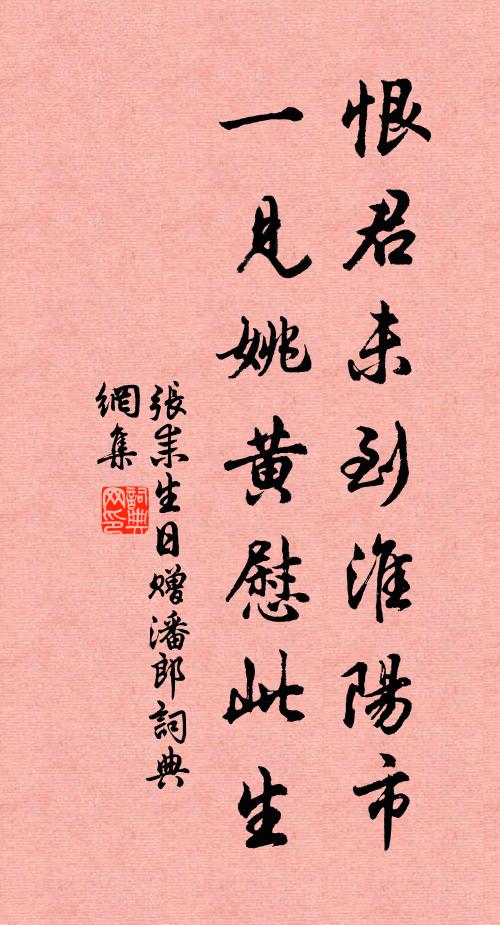 恨君未到淮陽市
一見姚黄慰此生
張耒生日赠潘郎詞典
網集
詞典
网印